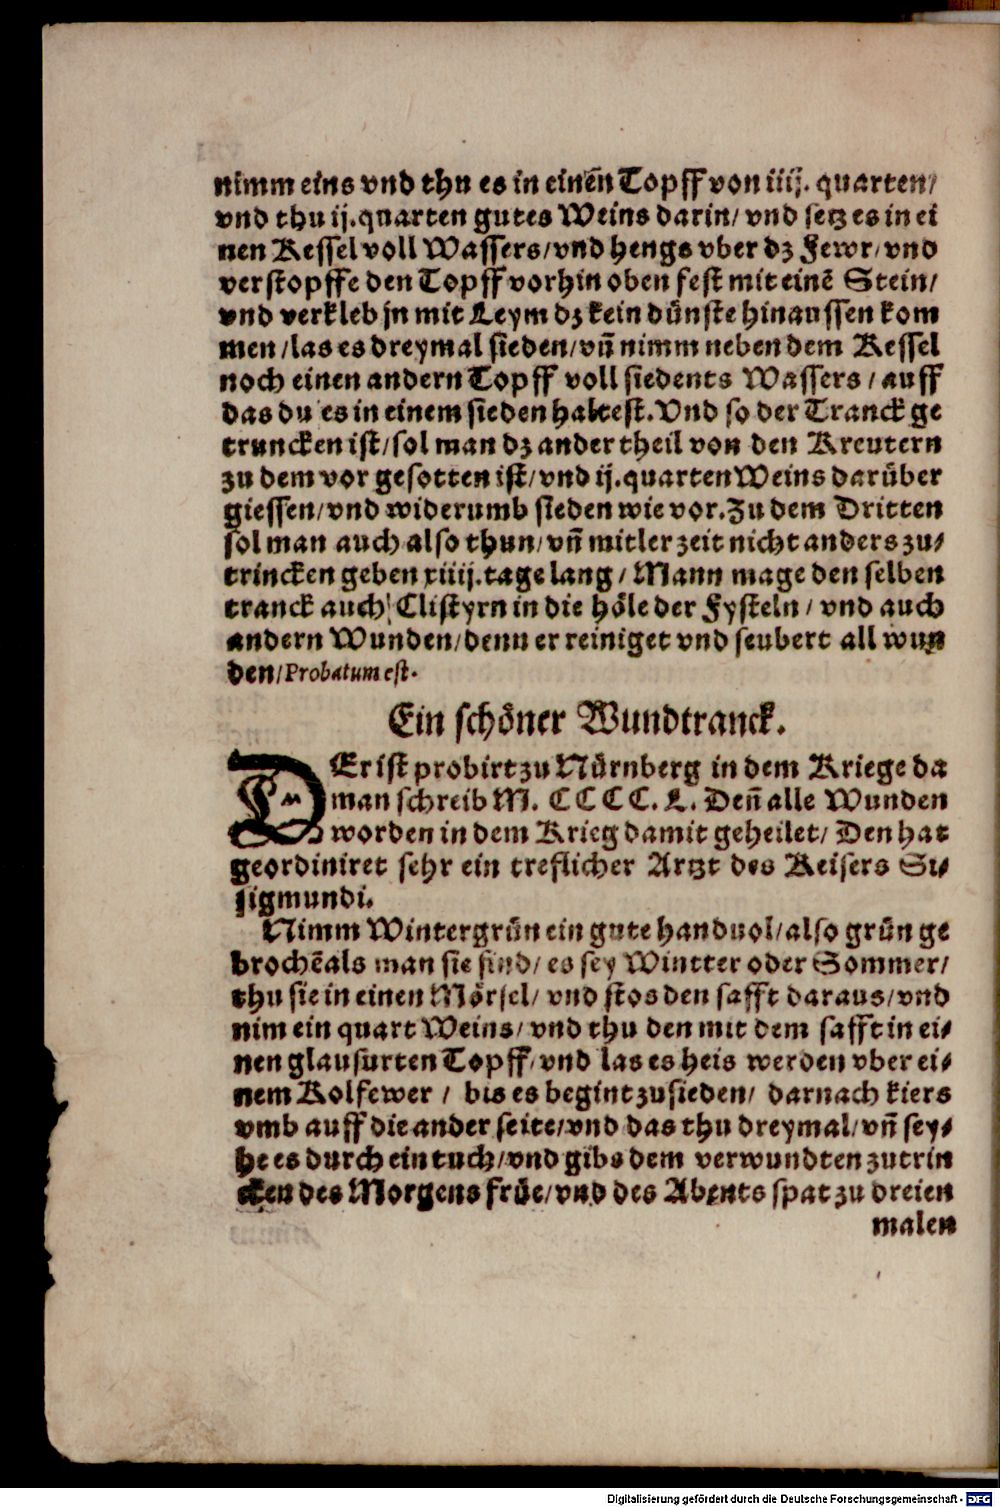 nimm eins vnd thu es in einẽn Topff von iiij. quarten/
vnd thu ij. quarten gutes Weins darin/ vnd setz es in ei
nen Kessel voll Wassers/ vnd hengs vber dz Fewr/ vnd
verstopffe den Topff vorhin oben fest mit einẽ Stein/
vnd verkleb jn mit Leym dz kein dünste hinaussen kom
men/ las es dreymal sieden/ vñ nimm neben dem Kessel
noch einen andern Topff voll siedents Wassers / auff
das du es in einem sieden haltest. Vnd so der Tranck ge
truncken ist/ sol man dz ander theil von den Kreutern
zu dem vor gesotten ist/ vnd ij. quarten Weins darüber
giessen/ vnd widerumb sieden wie vor. Zu dem Dritten
sol man auch also thun/ vñ mitler zeit nicht anders zu-
trincken geben xiiij. tage lang / Mann mage den selben
tranck auch Clistyrn in die höle der Fysteln / vnd auch
andern Wunden/ denn er reiniget vnd seubert all wun
den/ Probatum est.
Ein schöner Wundtranck.
DEr ist probirt zu Nürnberg in dem Kriege da
man schreib M. CCCC. L. Deñ alle Wunden
worden in dem Krieg damit geheilet/ Den hat
geordiniret sehr ein treflicher Artzt des Keisers Si-
sigmundi.
Nimm Wintergrün ein gute handuol/ also grün ge
brochẽ als man sie sind/ es sey Wintter oder Sommer/
thu sie in einen Mörsel/ vnd stos den safft daraus/ vnd
nim ein quart Weins/ vnd thu den mit dem safft in ei-
nen glausurten Topff/ vnd las es heis werden vber ei-
nem Kolfewer / bis es begint zu sieden/ darnach kiers
vmb auff die ander seite/ vnd das thu dreymal/ vñ sey-
he es durch ein tuch/ vnd gibs dem verwundten zu trin
cken des Morgens früe/ vnd des Abents spat zu dreien
malen
Digitalisierung gefördert durch die Deutsche Forschungsgemeinschaft - DFG